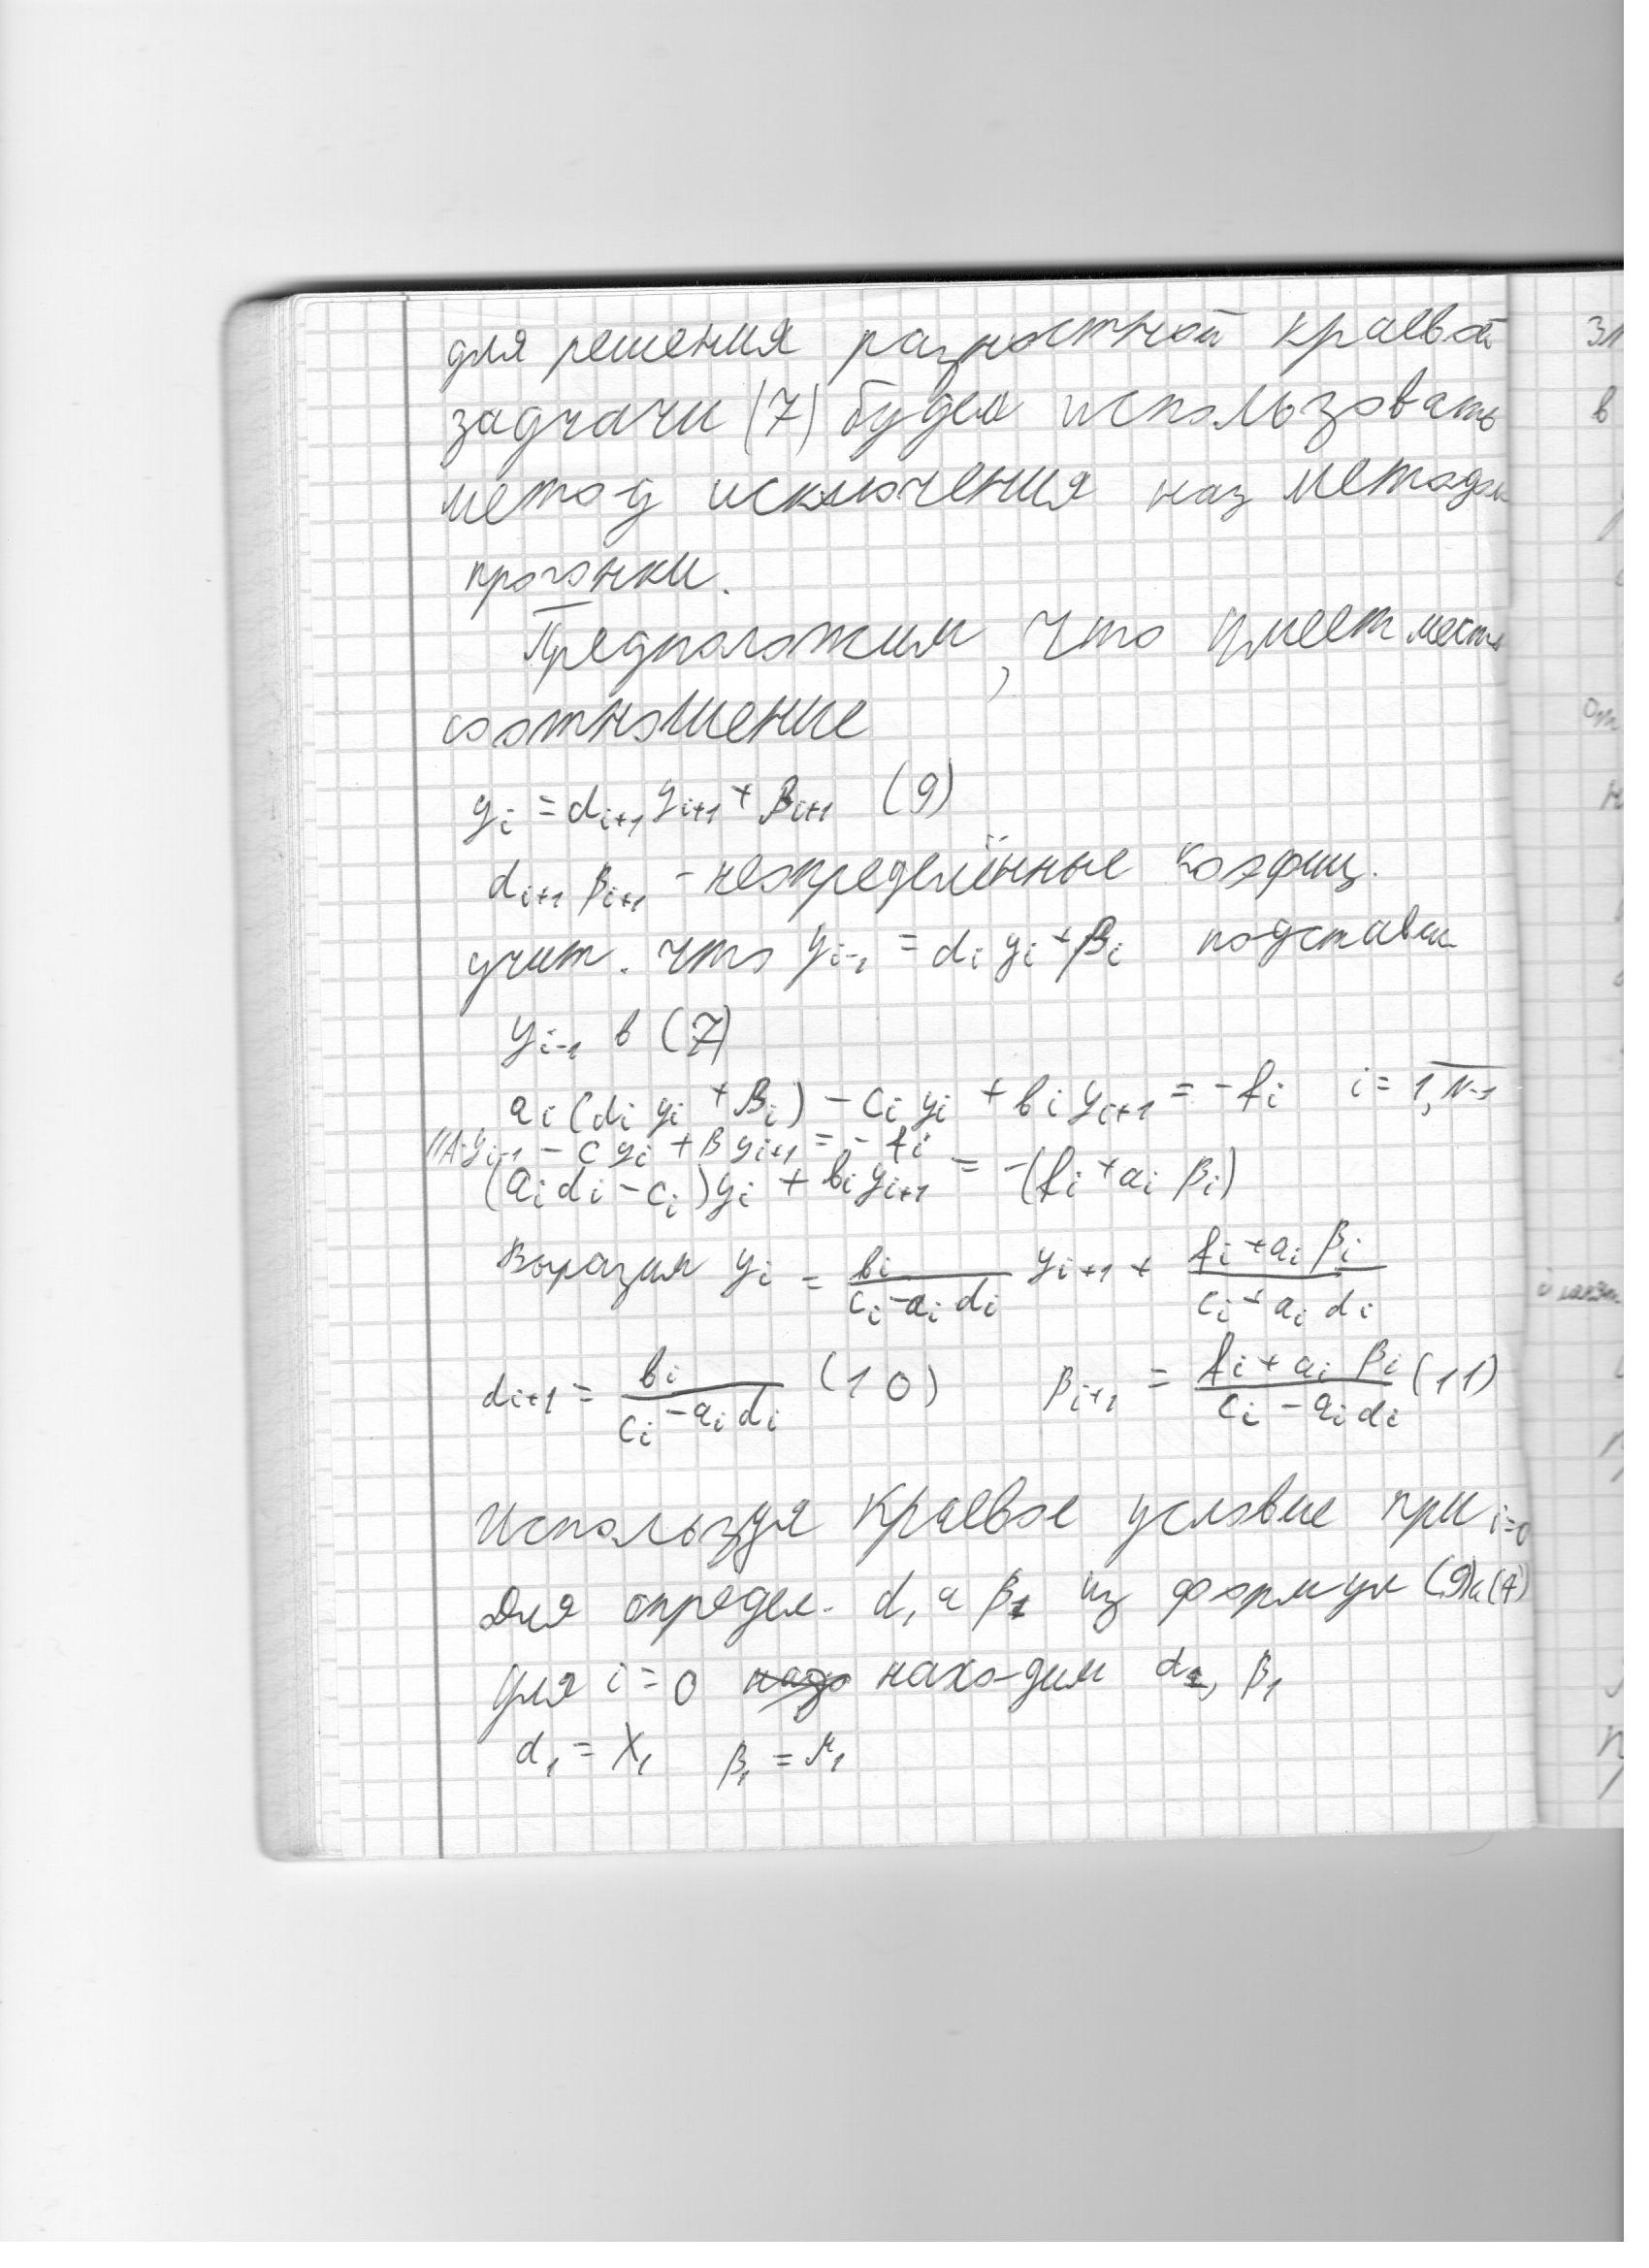 для решения разностной краевой
задчачи (7) будем использовать
метод исключения наз методом
прогонки.
Предположим, что имеет место
соотношение
yi = αi+1 yi+1 + βi+1 (9)
αi+1 βi+1 - неопределённые коэфиц.
учит. что yi-1 = αi yi + βi подставим
yi-1 в (7)
ai(αi yi + βi) - ci yi + bi yi+1 = -fi i = 1,N-1
//Aiyi-1 - c yi + B yi+1 = -fi
(ai αi - ci)yi + bi yi+1 = -(fi + ai βi)
Выразим yi = bi / (ci - ai αi) yi+1 + (fi + ai βi) / (ci - ai αi)
αi+1 = bi / (ci - ai αi) (10) βi+1 = (fi + ai βi) / (ci - ai αi) (11)
Используя краевое условие при i=0
для определ. α1 и β1 из формул (9) и (7)
для i = 0 находим α1, β1
α1 = χ1 β1 = μ1